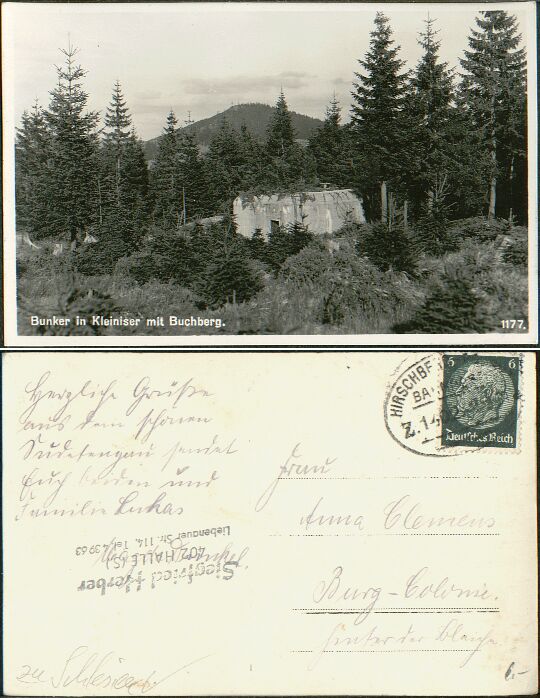 Bunker in Kleiniser mit Buchberg.
1177.
Herzliche Grüße
aus dem schönen
Sudetengau sendet
Euch beiden und
Familie Lukas
Siegfried Herber
402 HALLE/S.
Liebenauer Str. 114, Tel. 4 39 63
HIRSCHBE
BA
Z.14
5 6
Deutsches Reich
Frau
Anna Clemens
Burg-Colonie.
hinter der
zu Schlesien
6.-